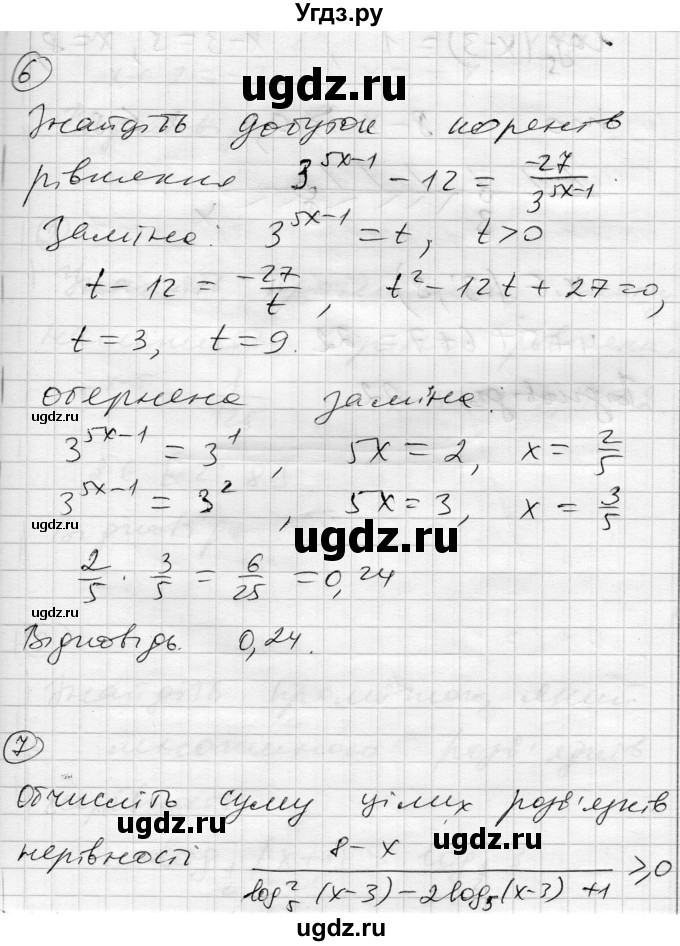 Угдз.ру
ugdz.ru
6
Знайдіть добуток коренів
ugdz.ru
рівняння 3^(5x-1) - 12 = -27/3^(5x-1)
Заміна: 3^(5x-1) = t, t>0
ugdz.ru
t - 12 = -27/t, t² - 12t + 27 = 0,
t = 3, t = 9.
обернена заміна:
ugdz.ru
3^(5x-1) = 3^1, 5x = 2, x = 2/5
3^(5x-1) = 3^2, 5x = 3, x = 3/5
ugdz.ru
ugdz.ru
2/5 · 3/5 = 6/25 = 0,24
ugdz.ru
Відповідь. 0,24.
7
Обчисліть суму цілих розв'язків
ugdz.ru
ugdz.ru
нерівності (8 - x)/(log²₅(x-3) - 2log₅(x-3) + 1) ≥ 0
ugdz.ru